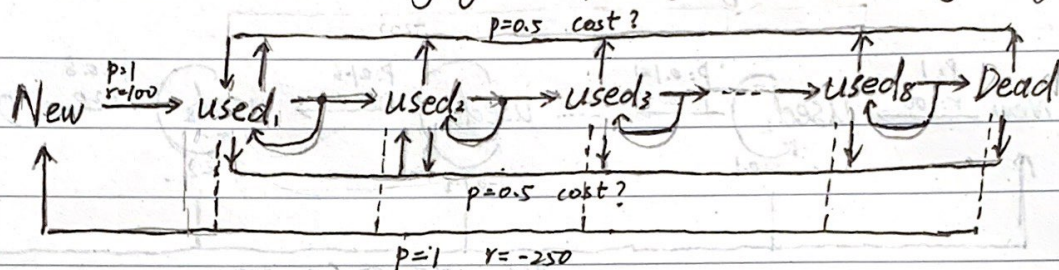 p=0.5 cost?
p=1
r=100
New used₁ used₂ used₃ ---- used₈ Dead
p=0.5 cost?
p=1 r=-250